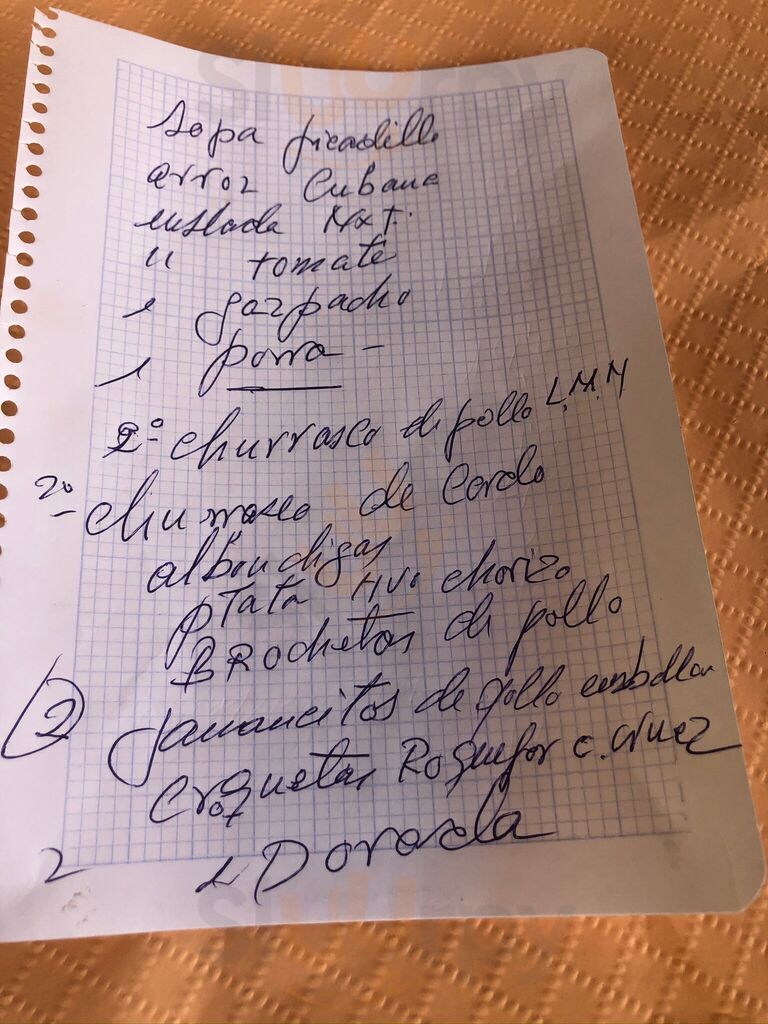 Sopa picadillo
arroz Cubana
enslada Mxt.
" tomate
1 gazpacho
1 porra -
2º churrasco de pollo L.M.M
2º churrasco de Cerdo
albondigas
pTata Hvo chorizo
BRochetas de pollo
2 jamoncitos de pollo
croquetas Roquefor c. Nuez
2 Dorada